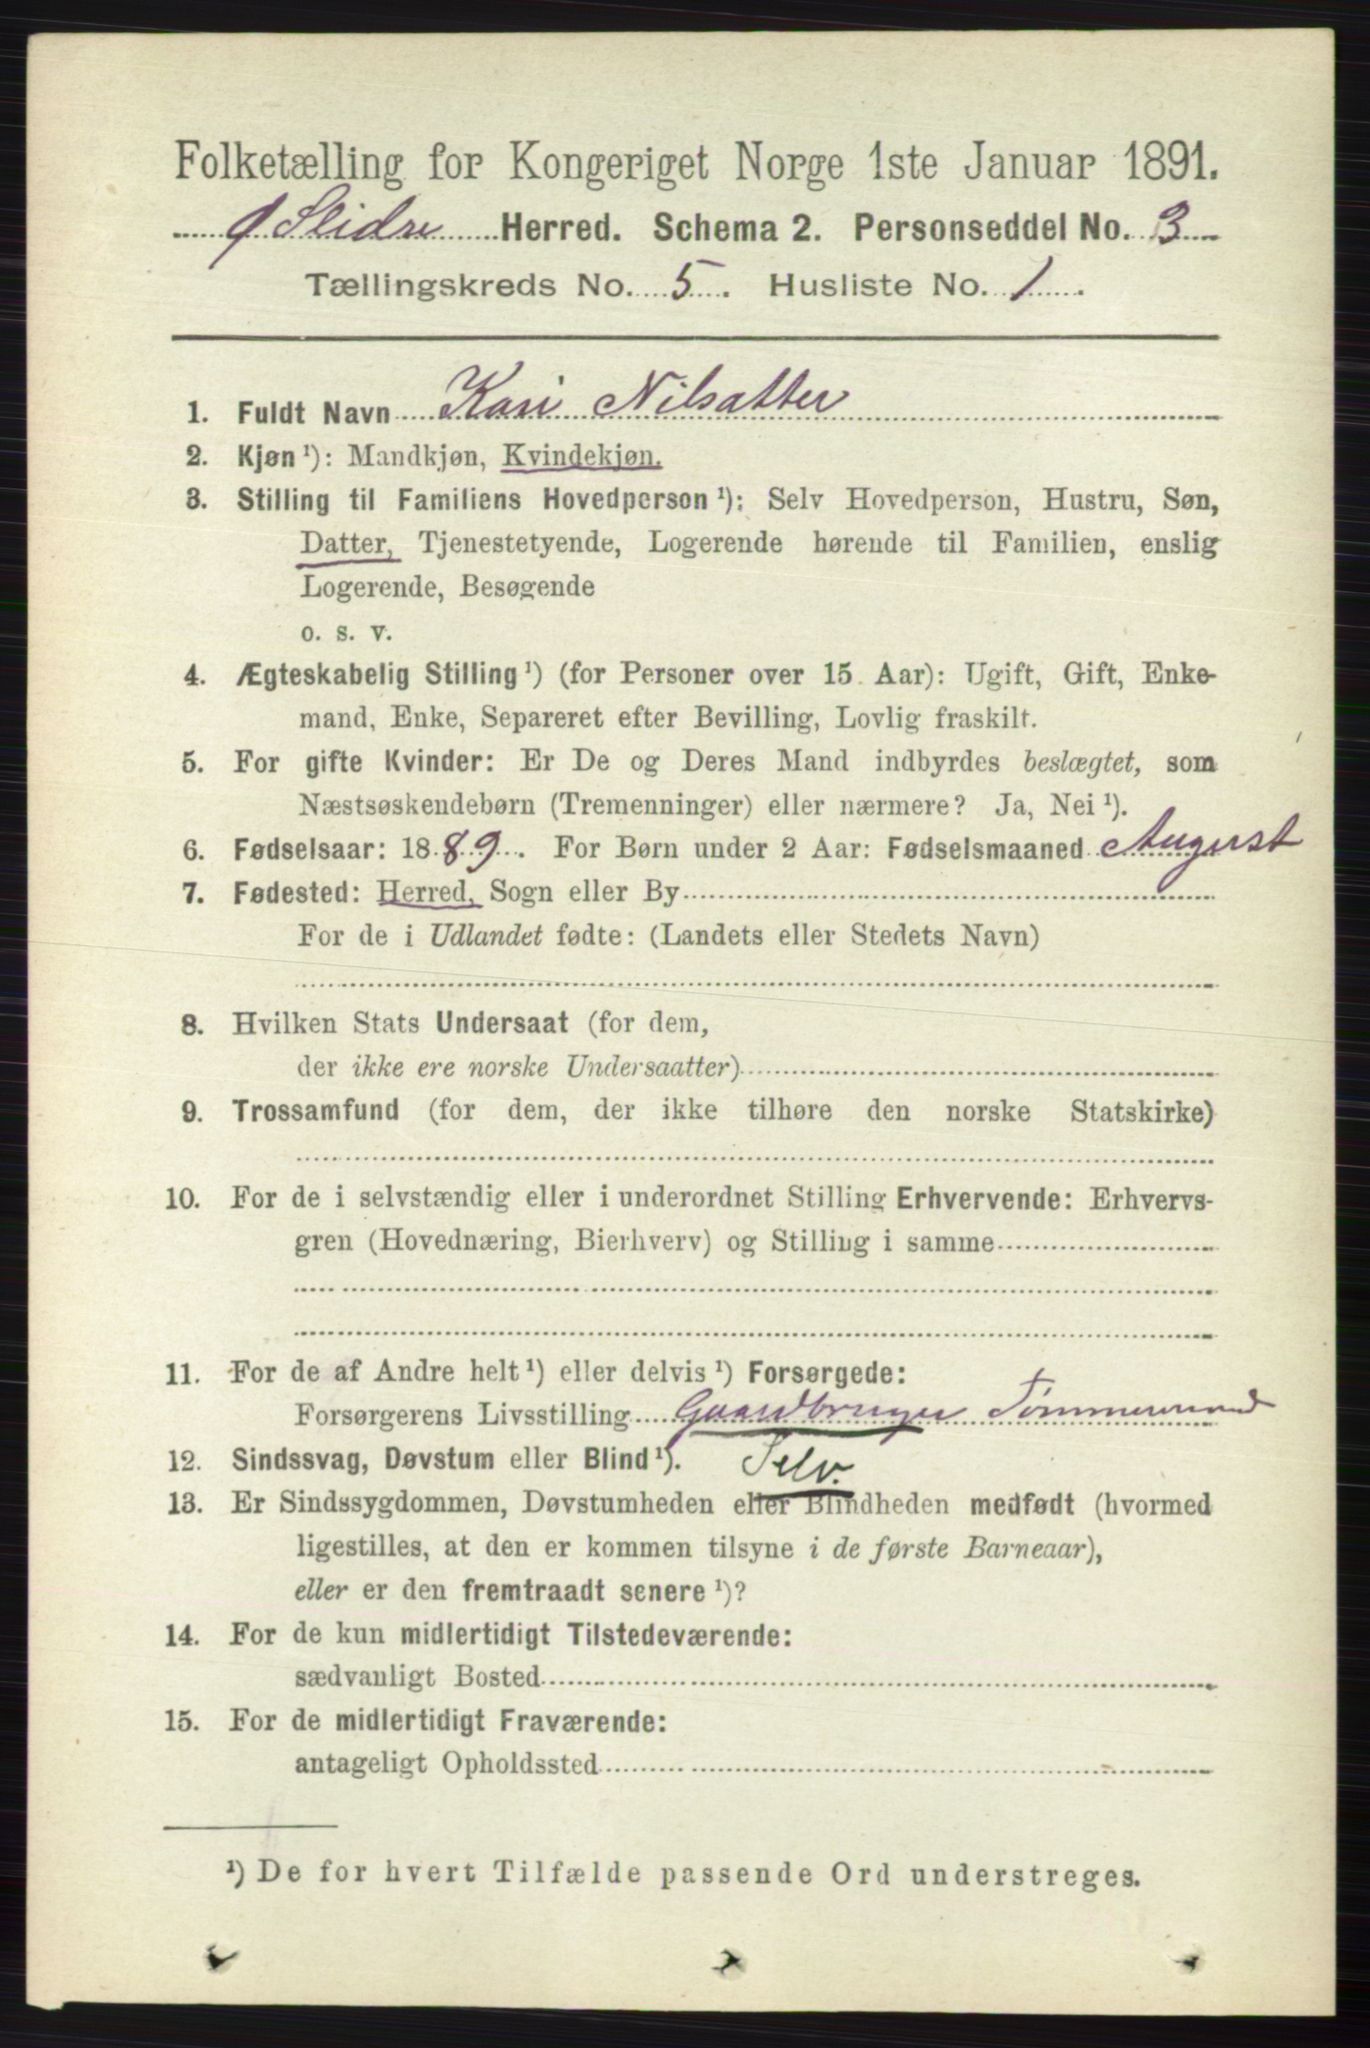 Folketælling for Kongeriget Norge 1ste Januar 1891.
Ø Slidre Herred. Schema 2. Personseddel No. 3
Tællingskreds No. 5. Husliste No. 1.
1. Fuldt Navn Kari Nilsatter
2. Kjøn ¹): Mandkjøn, Kvindekjøn.
3. Stilling til Familiens Hovedperson ¹): Selv Hovedperson, Hustru, Søn,
Datter, Tjenestetyende, Logerende hørende til Familien, enslig
Logerende, Besøgende
o. s. v.
4. Ægteskabelig Stilling ¹) (for Personer over 15 Aar): Ugift, Gift, Enke-
mand, Enke, Separeret efter Bevilling, Lovlig fraskilt.
5. For gifte Kvinder: Er De og Deres Mand indbyrdes beslægtet, som
Næstsøskendebørn (Tremenninger) eller nærmere? Ja, Nei ¹).
6. Fødselsaar: 1889. For Børn under 2 Aar: Fødselsmaaned August
7. Fødested: Herred, Sogn eller By
For de i Udlandet fødte: (Landets eller Stedets Navn)
8. Hvilken Stats Undersaat (for dem,
der ikke ere norske Undersaatter)
9. Trossamfund (for dem, der ikke tilhøre den norske Statskirke)
10. For de i selvstændig eller i underordnet Stilling Erhvervende: Erhvervs-
gren (Hovednæring, Bierhverv) og Stilling i samme
11. For de af Andre helt ¹) eller delvis ¹) Forsørgede:
Forsørgerens Livsstilling Gaardbruger Tømmermand
12. Sindssvag, Døvstum eller Blind ¹). Selv.
13. Er Sindssygdommen, Døvstumheden eller Blindheden medfødt (hvormed
ligestilles, at den er kommen tilsyne i de første Barneaar),
eller er den fremtraadt senere ¹)?
14. For de kun midlertidigt Tilstedeværende:
sædvanligt Bosted
15. For de midlertidigt Fraværende:
antageligt Opholdssted
¹) De for hvert Tilfælde passende Ord understreges.